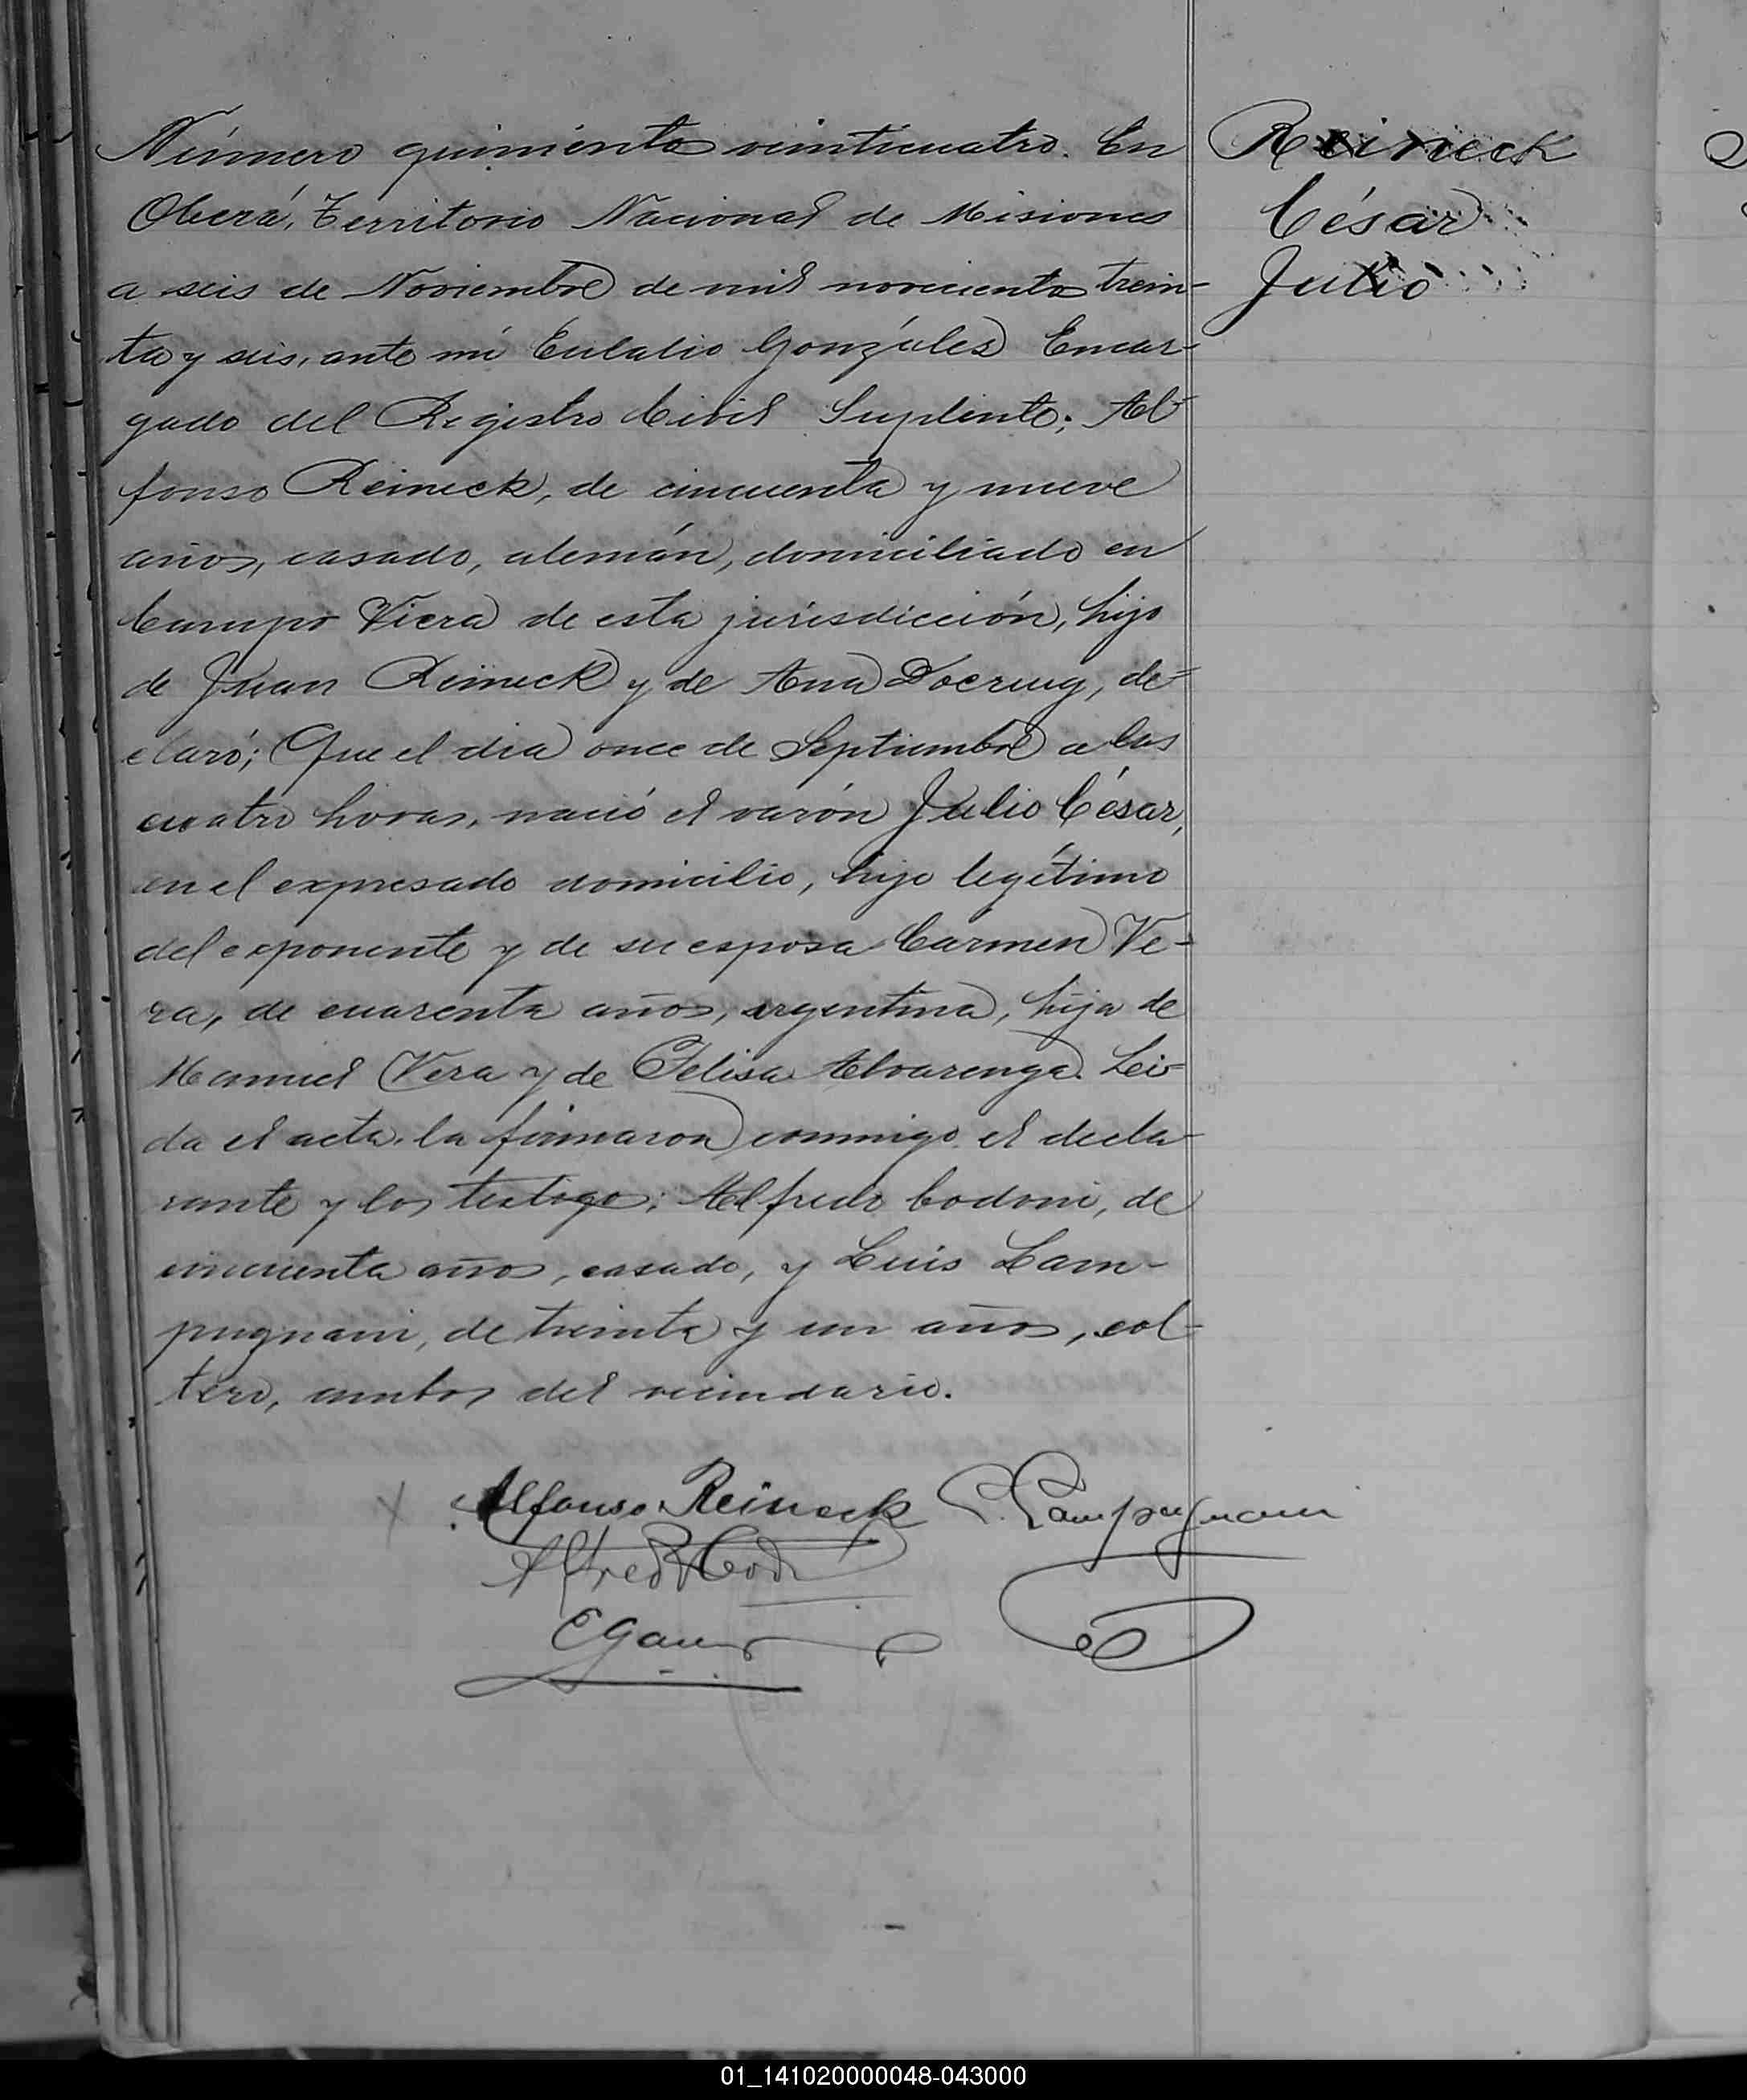 Número quinientos veinticuatro. En
Oberá, Territorio Nacional de Misiones
a seis de Noviembre de mil novecientos trein-
ta y seis, ante mí Eulalio Gonzáles Encar-
gado del Registro Civil Suplente; Al-
fonso Reineck, de cincuenta y nueve
años, casado, alemán, domiciliado en
Campo Viera de esta jurisdicción, hijo
de Juan Reineck y de Ana Doering, de-
claró; Que el dia once de Septiembre a las
cuatro horas, nació el varón Julio César,
en el expresado domicilio, hijo legítimo
del exponente y de su esposa Carmen Ve-
ra, de cuarenta años, argentina, hija de
Manuel Vera y de Felisa Alvarenga. Lei-
da el acta, la firmaron conmigo el decla-
rante y los testigos; Alfredo Codoni, de
cincuenta años, casado, y Luis Lam-
pugnani, de treinta y un años, sol-
tero, ambos del vecindario.
Reineck
César
Julio
Alfonso Reineck
L. Lampugnani
Alfredo Codoni
01_141020000048-043000